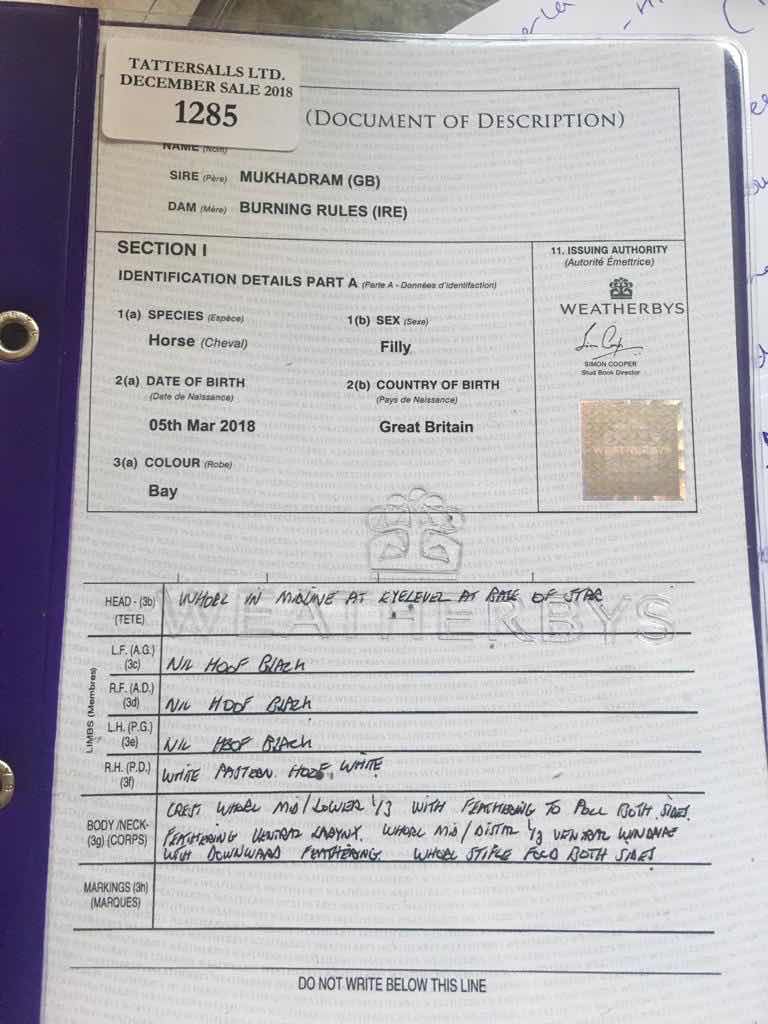 TATTERSALLS LTD.
DECEMBER SALE 2018
1285
(DOCUMENT OF DESCRIPTION)
NAME (Nom)
SIRE (Père) MUKHADRAM (GB)
DAM (Mère) BURNING RULES (IRE)
SECTION I
IDENTIFICATION DETAILS PART A (Parte A - Données d'identifaction)
1(a) SPECIES (Espèce)
Horse (Cheval)
1(b) SEX (Sexe)
Filly
2(a) DATE OF BIRTH
(Date de Naissance)
05th Mar 2018
2(b) COUNTRY OF BIRTH
(Pays de Naissance)
Great Britain
3(a) COLOUR (Robe)
Bay
11. ISSUING AUTHORITY
(Autorité Émettrice)
WEATHERBYS
SIMON COOPER
Stud Book Director
WEATHERBYS
WEATHERBYS
HEAD - (3b) WHORL IN MIDLINE AT EYELEVEL AT BASE OF STAR
(TETE)
LIMBS (Membres)
L.F. (A.G.) NIL HOOF BLACK
(3c)
R.F. (A.D.) NIL HOOF BLACK
(3d)
L.H. (P.G.) NIL HOOF BLACK
(3e)
R.H. (P.D.) WHITE PASTERN. HOOF WHITE
(3f)
BODY /NECK-
(3g) (CORPS)
CREST WHORL MID/LOWER 1/3 WITH FEATHERING TO POLL BOTH SIDES.
FEATHERING VENTRAL LARYNX. WHORL MID/DISTAL 1/3 VENTRAL WINDPIPE
WITH DOWNWARD FEATHERING. WHORL STIFLE FOLD BOTH SIDES
MARKINGS (3h)
(MARQUES)
DO NOT WRITE BELOW THIS LINE